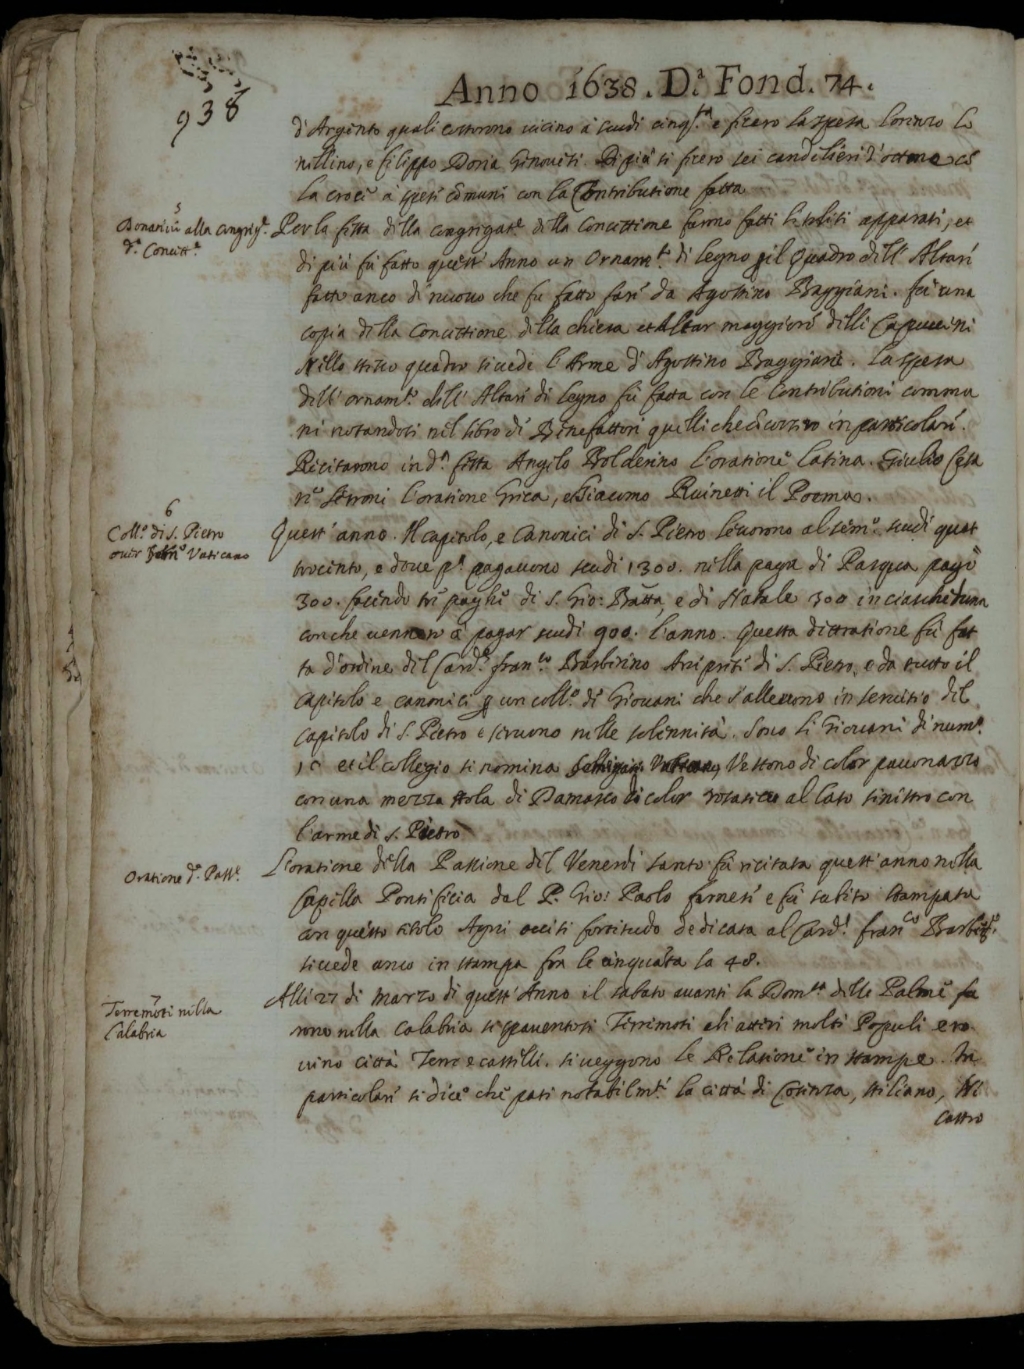 938
Anno 1638. D.ª Fond. 74.
d'Argento quali costorono vicino à scudi cinq.ta e fecero la spesa Lorenzo Co
mellino, e Filippo Doria Genovesi. Di più si fecero sei candelieri d'ottone cō
la croce à spesi cōmuni con la Contributione fatta
5
Donativi alla congreg.e
d.ª Concett.e
Per la festa della congregat.e della Concettione furno fatti li soliti apparati, et
di più fù fatto quest' Anno un Ornam.to di legno p il Quadro dell' Altare
fatto anco di nuovo che fu fatto fare da Agostino Baggiani. fu una
copia della Concettione della chiesa et Altar maggiore delli Capuccini
Nello stesso quadro si vede l'Arme d'Agostino Baggiani. La spesa
dell' ornam.to dell' Altare di legno fù fatta con le Contributioni commu
ni notandosi nel libro di Benefattori quelli che dicorsero in particolare.
Recitarono in d.ª festa Angelo Bolderino l'oratione latina. Giulio Cesa
re Stroni l'oratione Greca, e Giacomo Ruinetti il Poema.
6
Coll.o di S. Pietro
over Sem.o Vaticano
Quest' anno. Il capitolo, e Canonici di S. Pietro levorono al sem.o scudi quat
trocento, e dove p.ª pagavono scudi 1300. nella paga di Pasqua pagò
300. facendo tre paghe di S. Gio: Batta, e di Natale 300 in ciascheduna
con che vennero à pagar scudi 900. l'anno. Questa dettratione fù fat
ta d'ordine del Card.e Fran.co Barberino Arciprete di S. Pietro, e da tutto il
capitolo e canonici p un coll.o di Giovani che s'allevono in servitio del
capitolo di S. Pietro e servono nelle solennità. Sono li Giovani di num.o
et il collegio si nomina Seminario Vaticano, Vestono di color pavonazzo
con una mezza stola di Damasco di color rosaticcio al lato sinistro con
l'arme di S. Pietro
Oratione d.ª Pass.e
L'oratione della Passione del Venerdi santo fù recitata quest' anno nella
Capella Pontificia dal P. Gio: Paolo Farnese e fù subito stampata
con questo titolo Agni occisi fortitudo dedicata al Card.l Fran.co Barber.o
si vede anco in stampa fra le cinquāta la 48.
7
Terremoti nella
Calabria
Alli 27 di Marzo di quest' Anno il sabato avanti la Dom.ca delle Palme fu
rono nella Calabria si spaventosi Terremoti che atterì molti Populi e ro
vinò città Terre e castelli. si veggono le Relatione in stampe. In
particolare si dice che patì notabilm.te la città di Cosenza, Stiliano, Ni
castro